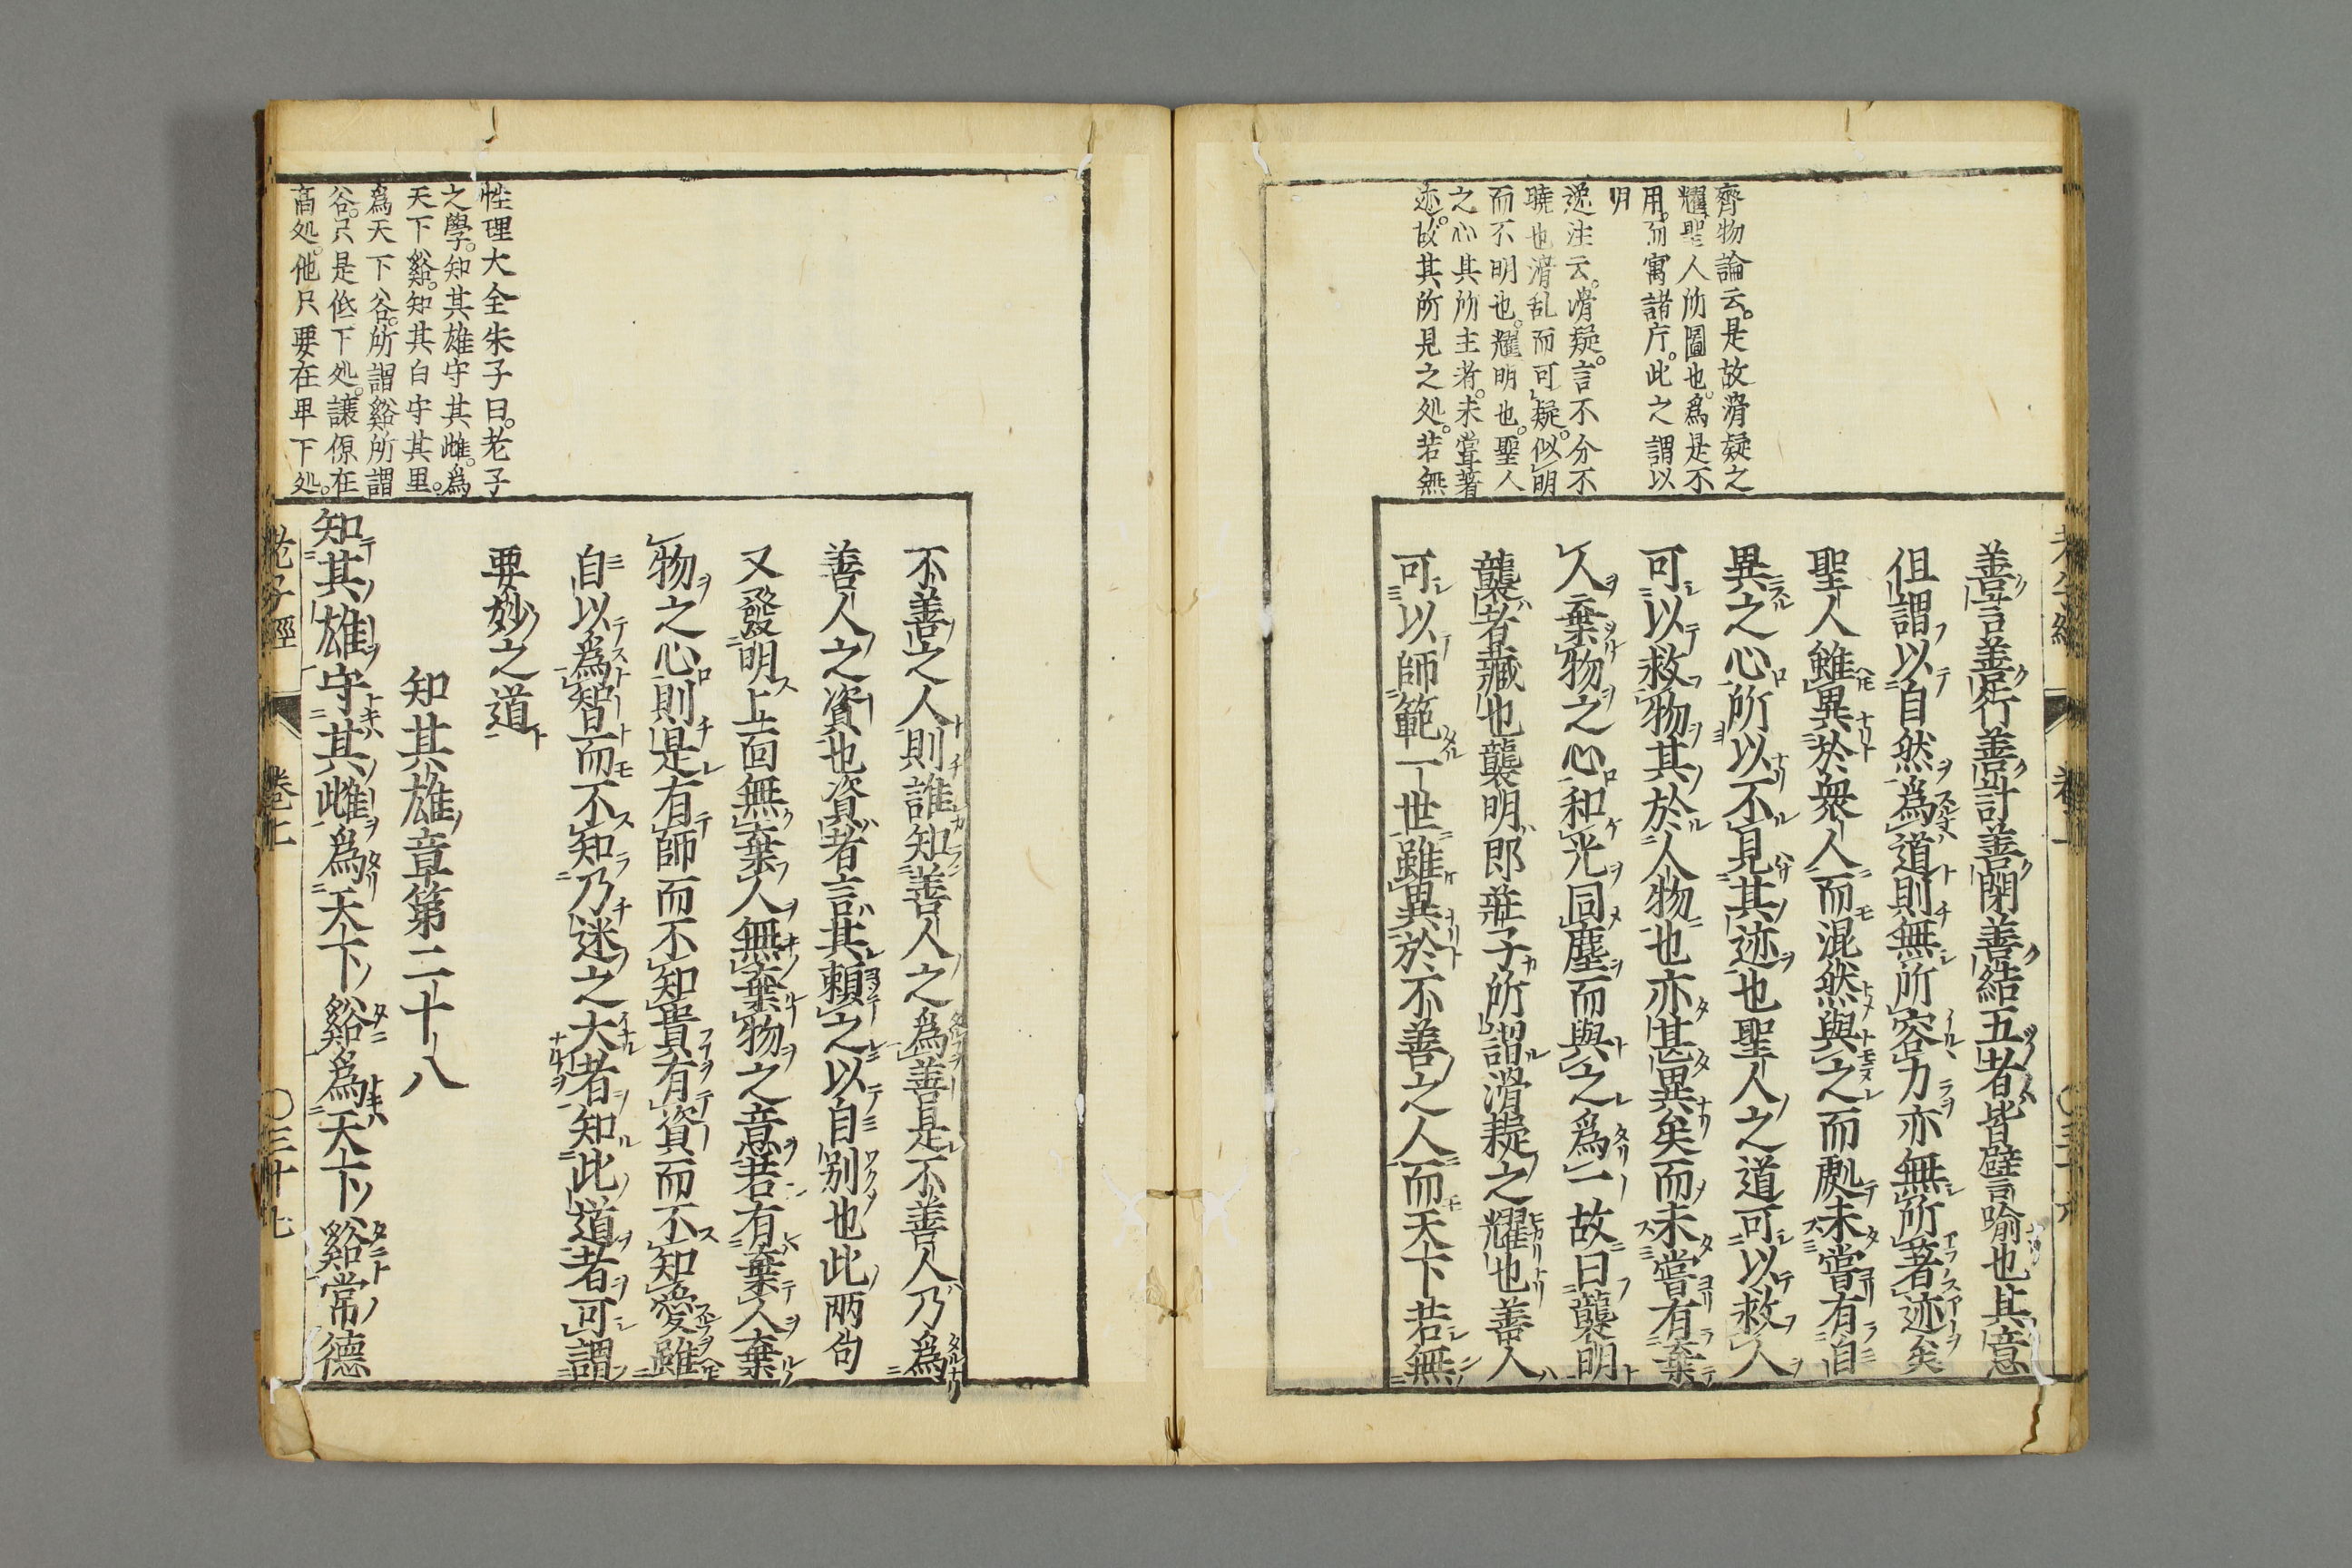 齊物論云。是故滑疑之
耀聖人所圖也。爲是不
用。而寓諸庁。此之謂以
明
逸注云。滑疑。言不分不
曉也滑乱而可疑。似明
而不明也。耀明也。聖人
之心其所主者。未嘗著
迹。故其所見之処。若無
善言善行善計善閉善結五者皆譬喻也其意
但謂以自然爲道則無所容力亦無所著迹矣
聖人雖異於衆人而混然與之而處未嘗有自
異之心所以不見其迹也聖人之道可以救人
可以救物其於人物也亦甚異矣而未嘗有棄
人棄物之心和光同塵而與之爲一故曰襲明
襲者藏也襲明即莊子所謂滑疑之耀也善人
可以師範一世雖異於不善之人而天下若無
不善之人則誰知善人之爲善是不善人乃爲
善人之資也資者言其頼之以自別也此兩句
又發明上面無棄人無棄物之意若有棄人棄
物之心則是有師而不知貴有資而不知愛雖
自以爲智而不知乃迷之大者知此道者可謂
要妙之道
知其雄章第二十八
知其雄守其雌爲天下谿爲天下谿常德
性理大全朱子曰。老子
之學。知其雄守其雌。爲
天下谿。知其白守其黒。
爲天下谷。所謂谿所謂
谷。只是低下処。讓伱在
高処。他只要在卑下処。
老子經 卷上 〇三十七